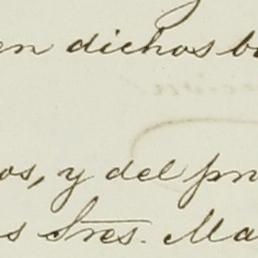 en dichos b
os, y del pr
s Sres. Ma